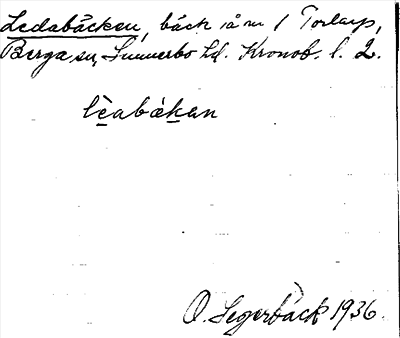 Ledabäcken, bäck i å m / Torlarp,
Berga sn, Sunnerbo hd. Kronob. l. 2.
lèabàkan
O. Segerbäck 1936.